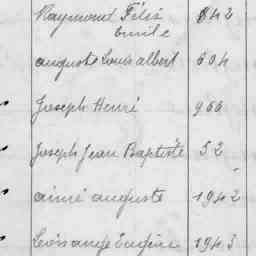 Raymond Félix 842
Emile
auguste Louis albert 604
Joseph Henri 966
Joseph Jean Baptiste 52
aimé auguste 1942
Léon ange Eugène 1943